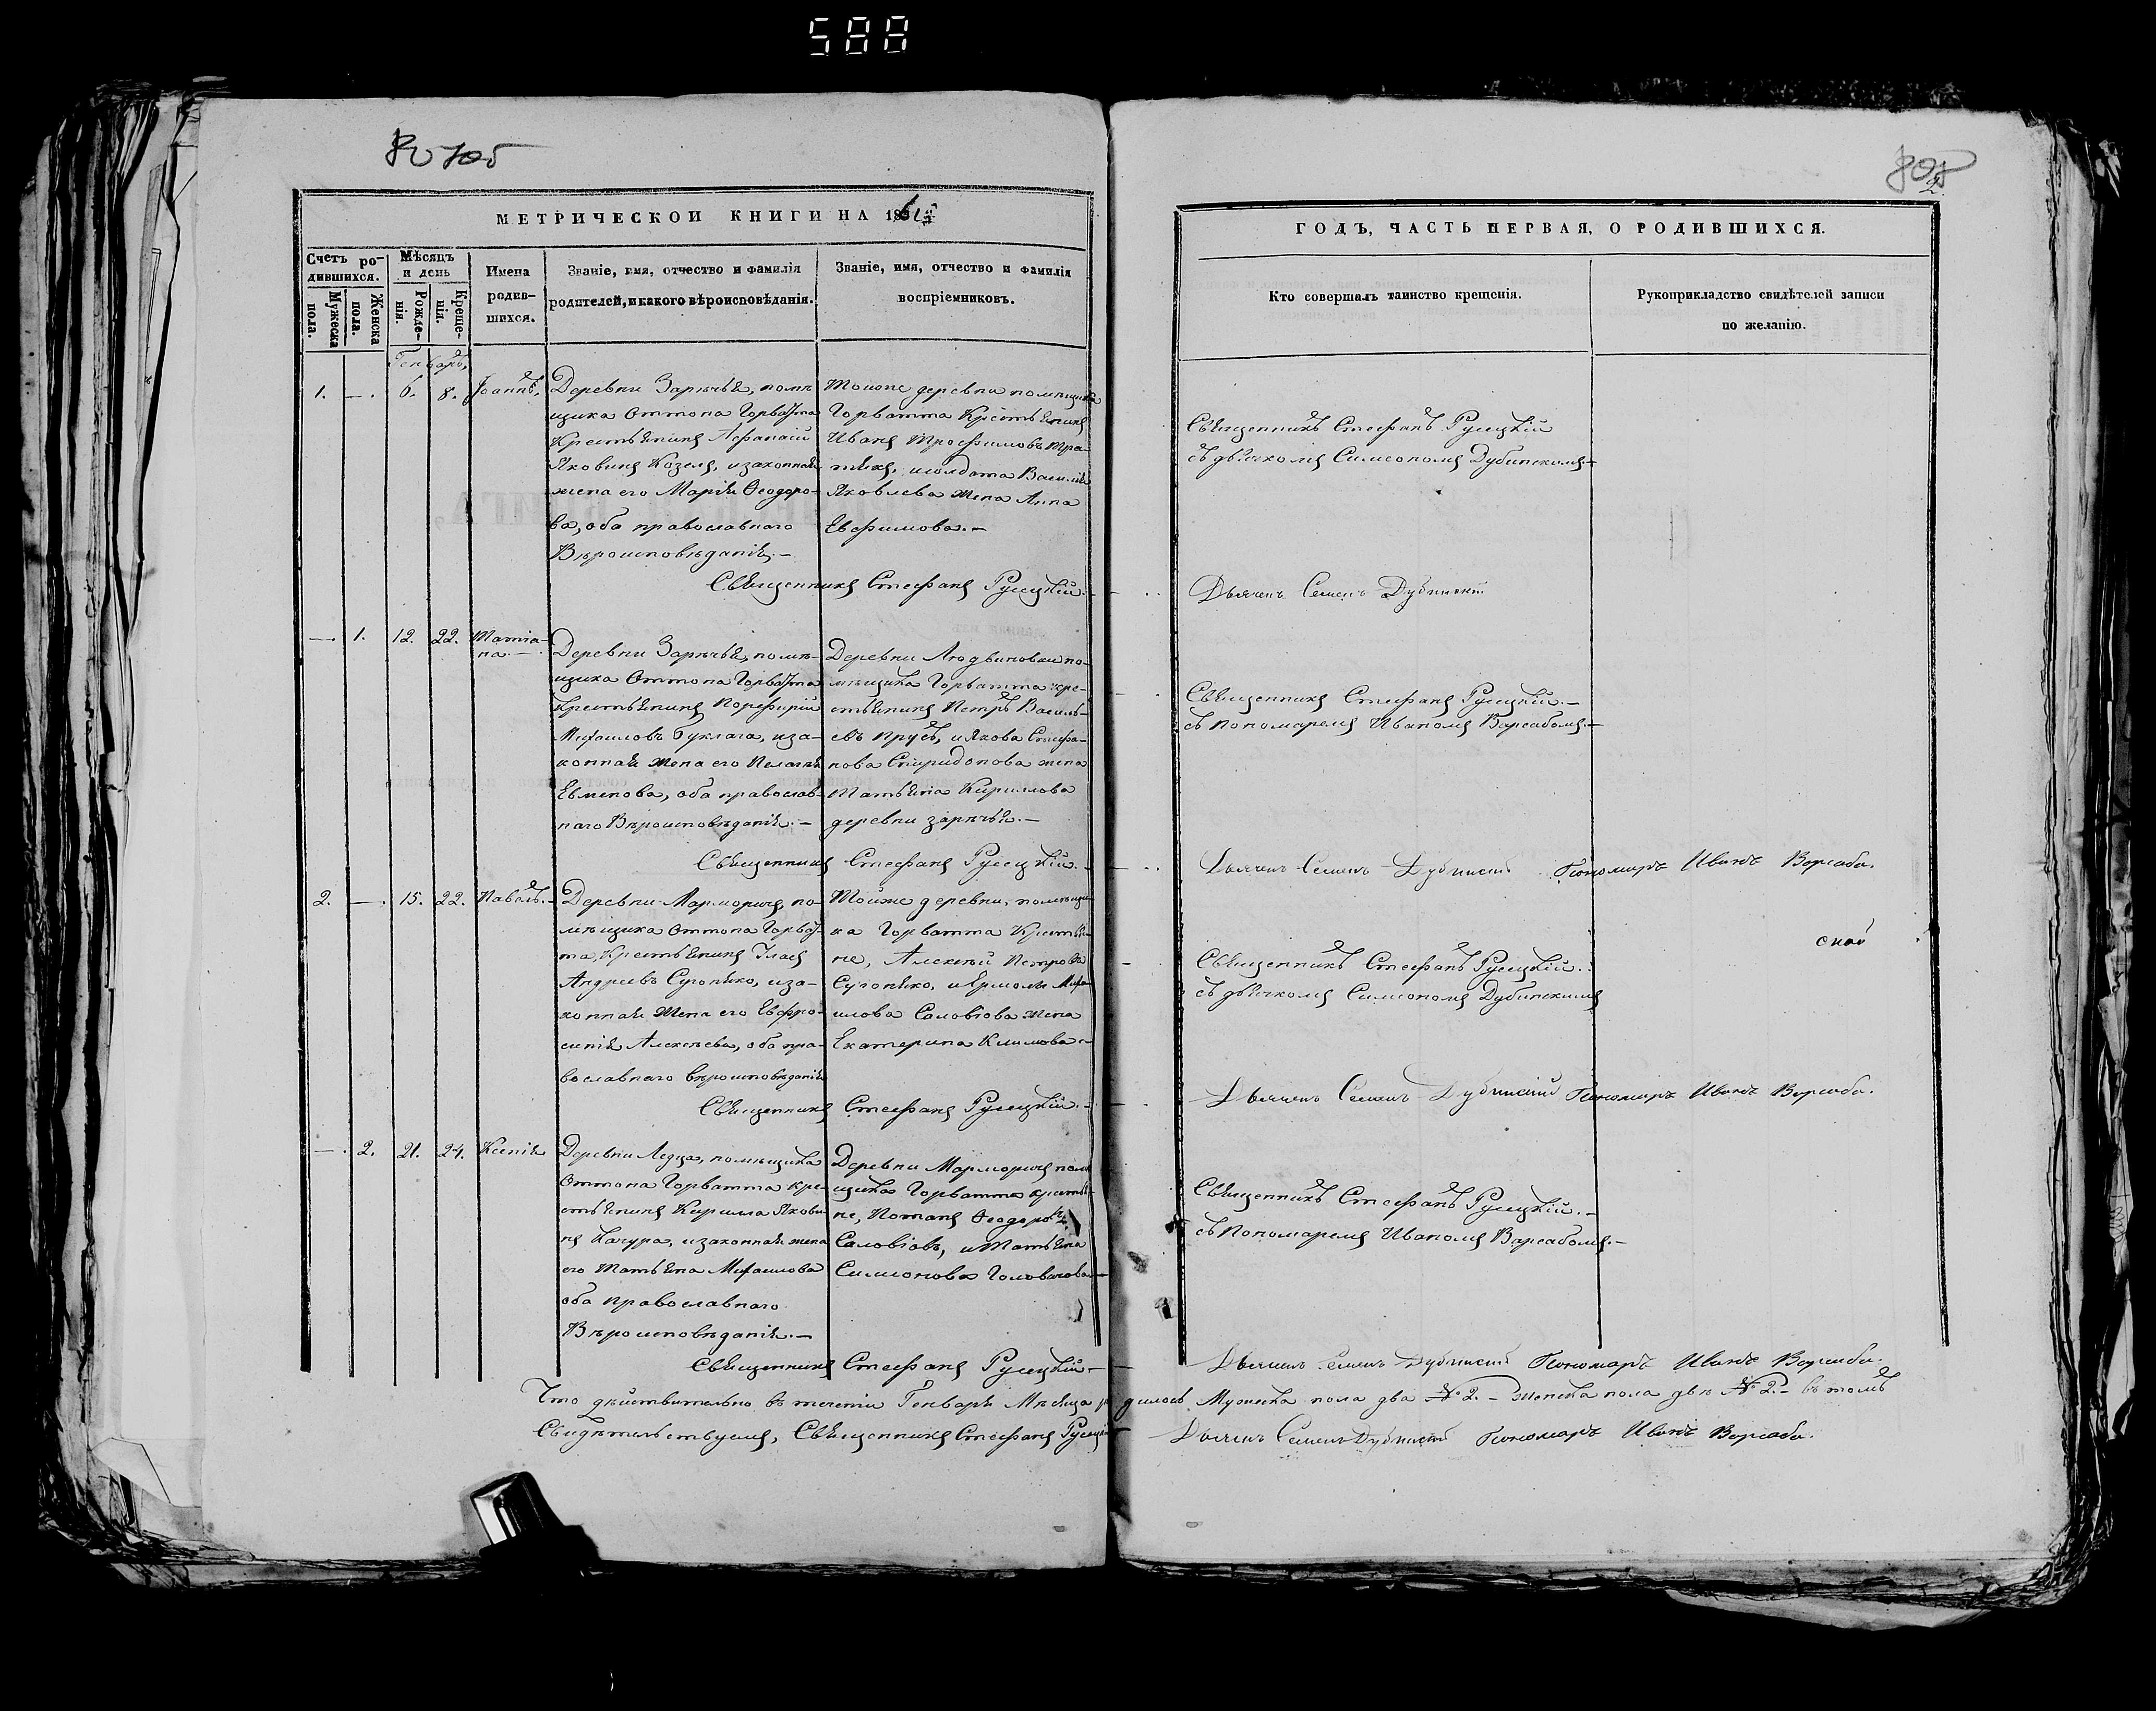 588
705
805
2
МЕТРИЧЕСКОЙ КНИГИ НА 1861й
ГОДЪ, ЧАСТЬ ПЕРВАЯ, О РОДИВШИХСЯ.
Счетъ ро-
дившихся.
Мужеска пола.
Женска пола.
Мѣсяцъ
и день
Рожде-
нія.
Креще-
нія.
Имена
родив-
шихся.
Званіе, имя, отчество и фамилія
родителей, и какого вѣроисповѣданія.
Званіе, имя, отчество и фамилія
воспріемниковъ.
Кто совершалъ таинство крещенія.
Рукоприкладство свидѣтелей записи
по желанію.
Генварь,
1. — 6. 8. Іоаннъ,
Деревни Зарѣчья, помѣ-
щика Оттона Горватта
Крестьянинъ Афанасій
Яковинъ Козелъ, и законная
жена его Марія Ѳеодоро-
ва, оба православнаго
Вѣроисповѣданія.—
Тоиже деревни помѣщика
Горватта Крестьянинъ
Иванъ Трофимовъ
солдата Василія
Яковлева жена Анна
Евфимова.—
Священникъ Стефанъ Русецкій
съ дьячкомъ Симеономъ Дубинскимъ—
Священникъ Стефанъ Русецкій.
Дьячекъ Семенъ Дубинскій
— 1. 12. 22. Татіа-
на.—
Деревни Зарѣчья, помѣ-
щика Оттона Горватта
Крестьянинъ Порфирій
Михаиловъ Буклага, и за-
конная жена его Пелагія
Евменова, оба православ-
наго Вѣроисповѣданія.—
Деревни Людвиновки по-
мѣщика Горватта кре-
стьянинъ Петръ Василь-
евъ Прусъ, и Якова Стефа-
нова Спиридонова жена
Татьяна Кириллова
деревни зарѣчья.—
Священникъ Стефанъ Русецкій.—
съ Пономаремъ Иваномъ Варсабомъ.—
Священникъ Стефанъ Русецкій.
Дьячекъ Семенъ Дубинскій Пономарь Иванъ Варсаба.
2. — 15. 22. Павелъ.—
Деревни Марморичъ, по-
мѣщика Оттона Горват-
та, Крестьянинъ Власъ
Андреевъ Сугоняко, и за-
конная жена его Евфро-
синія Алексѣева, оба пра-
вославнаго вѣроисповѣданія
Тоиже деревни, помѣщи-
ка Горватта Крестья-
не, Алексѣй Петровъ
Сугоняко, и Ермолы Миха-
илова Саловіова жена
Екатерина Климова—
Священникъ Стефанъ Русецкій.
съ дьячкомъ Симеономъ Дубинскимъ
Священникъ Стефанъ Русецкій.—
Дьячекъ Семенъ Дубинскій Пономарь Иванъ Варсаба.
— 2. 21. 24. Ксенія
Деревни Ледца, помѣщика
Оттона Горватта кре-
стьянинъ Кирилла Якови-
нъ Качура, и законная жена
его Татьяна Михаилова
оба православнаго
Вѣроисповѣданія.—
Деревни Марморичъ помѣ-
щика Горватта крестья-
не, Потапъ Ѳеодоровъ
Саловіовъ, и Татьяна
Симионова Головачова—
Священникъ Стефанъ Русецкій.—
съ Пономаремъ Иваномъ Варсабомъ.—
Священникъ Стефанъ Русецкій—
Дьячекъ Семенъ Дубинскій Пономарь Иванъ Варсаба.
Что дѣйствительно въ теченіи Генваря Мѣсяца родилось Мужеска пола два № 2.— женска пола двѣ № 2.— въ томъ
Свидѣтельствуемъ, Священникъ Стефанъ Русецкій Дьячекъ Семенъ Дубинскій Пономарь Иванъ Варсаба.